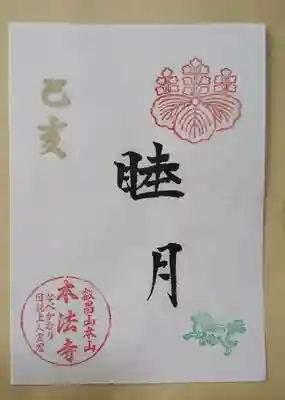 睦月
己亥
叡昌山本山
本法寺
なべかむり
日親上人